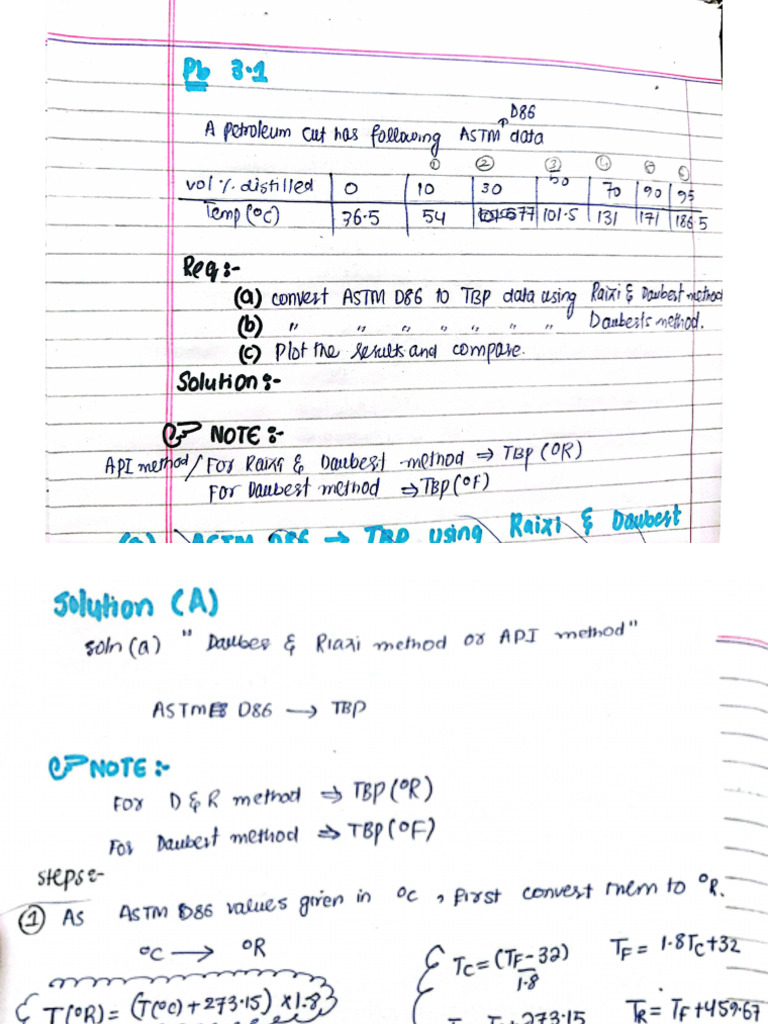 Pb 3.1
D86
A petroleum cut has following ASTM data
① ② ③
vol % distilled | 0 | 10 | 30 | 50 | 70 | 90 | 95
Temp (°C) | 36.5 | 54 | 77 | 101.5 | 131 | 171 | 186.5
Req :-
(a) convert ASTM D86 to TBP data using Raixi & Daubest method
(b) " " " " " " " Daubests method.
(c) Plot the results and compare.
Solution :-
NOTE :-
API method / For Raixi & Daubest method ⇒ TBP (°R)
For Daubest method ⇒ TBP (°F)
(a) ASTM D86 → TBP using Raixi & Daubest
Solution (A)
soln (a) " Daubes & Riazi method or API method "
ASTM D86 → TBP
NOTE :-
For D & R method ⇒ TBP (°R)
For Daubest method ⇒ TBP (°F)
steps :-
① AS ASTM D86 values given in °C , first convert them to °R.
°C → °R
T_C = (T_F - 32) / 1.8 T_F = 1.8T_C + 32
T(°R) = (T(°C) + 273.15) × 1.8 + 273.15 T_R = T_F + 459.67